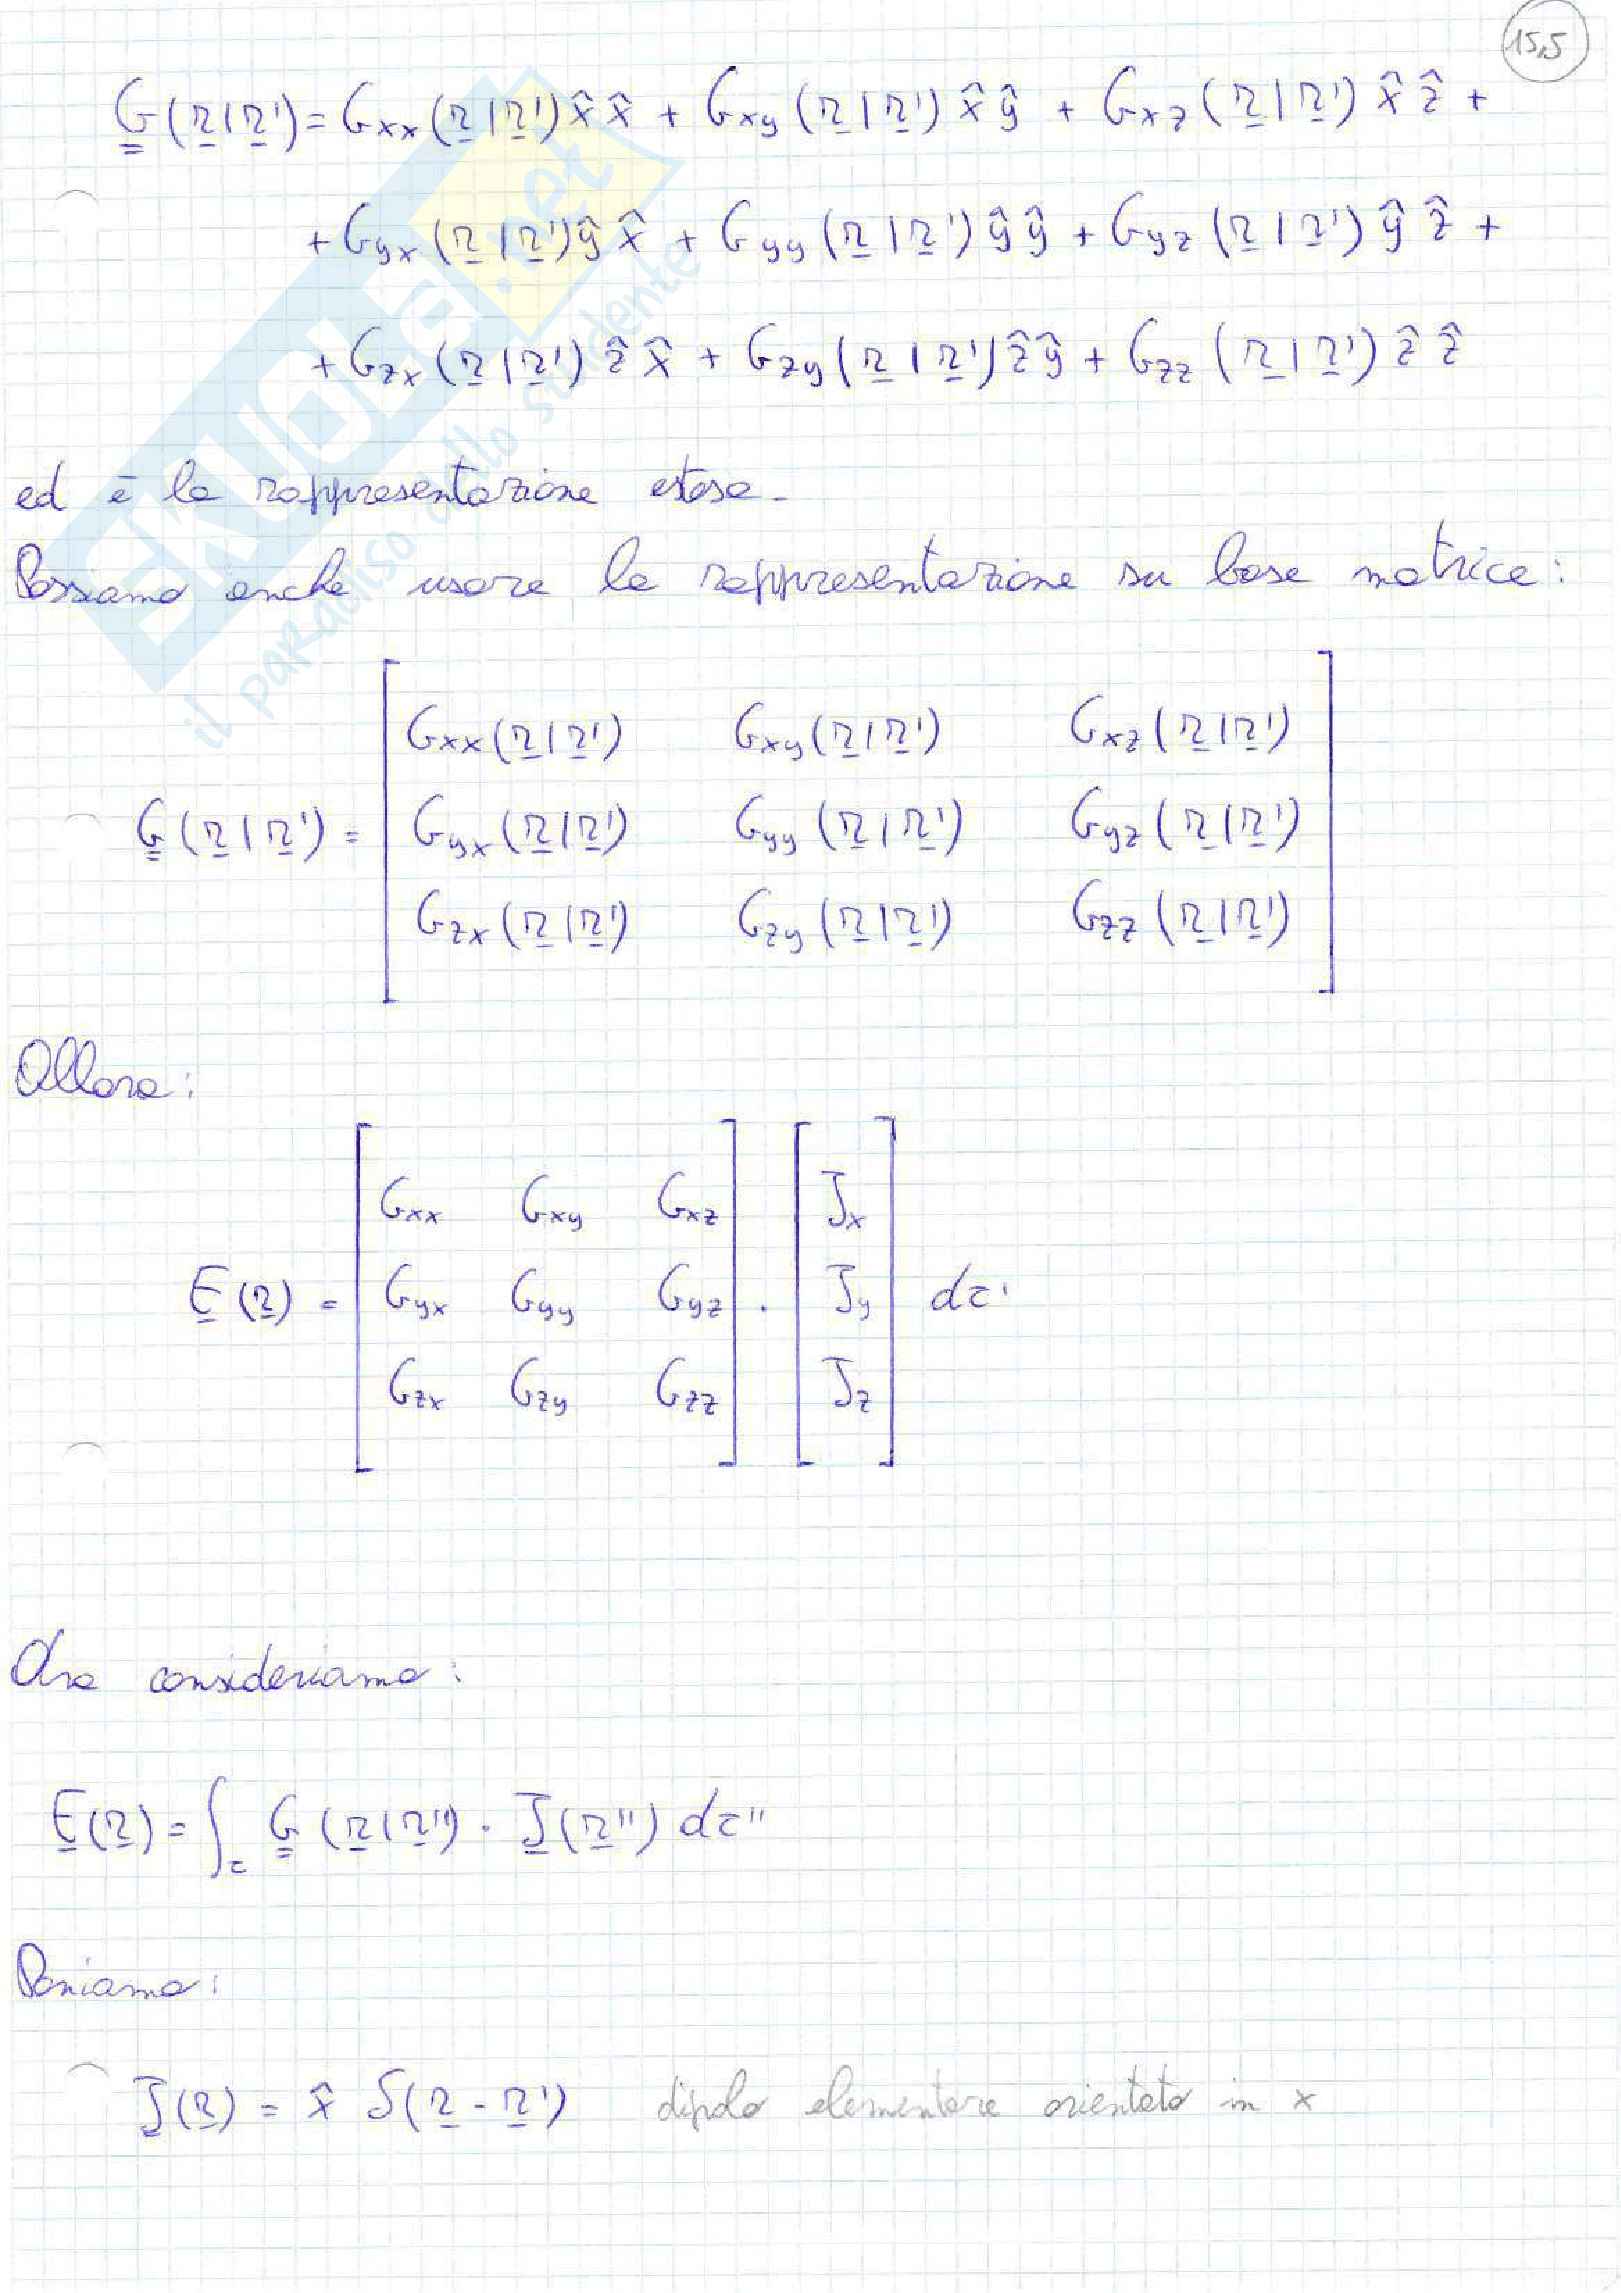 15,5
G(r|r') = Gxx(r|r') x̂ x̂ + Gxy(r|r') x̂ ŷ + Gxz(r|r') x̂ ẑ +
+ Gyx(r|r') ŷ x̂ + Gyy(r|r') ŷ ŷ + Gyz(r|r') ŷ ẑ +
+ Gzx(r|r') ẑ x̂ + Gzy(r|r') ẑ ŷ + Gzz(r|r') ẑ ẑ
ed è la rappresentazione estesa.
Possiamo anche usare la rappresentazione su base matrice:
Gxx(r|r') Gxy(r|r') Gxz(r|r')
G(r|r') = Gyx(r|r') Gyy(r|r') Gyz(r|r')
Gzx(r|r') Gzy(r|r') Gzz(r|r')
Allora:
Gxx Gxy Gxz Jx
E(r) = Gyx Gyy Gyz · Jy dτ'
Gzx Gzy Gzz Jz
Ora consideriamo:
E(r) = ∫τ G(r|r'') · J(r'') dτ''
Poniamo:
J(r) = x̂ δ(r - r') dipolo elementare orientato in x
SKUOLA.net
il paradiso dello studente